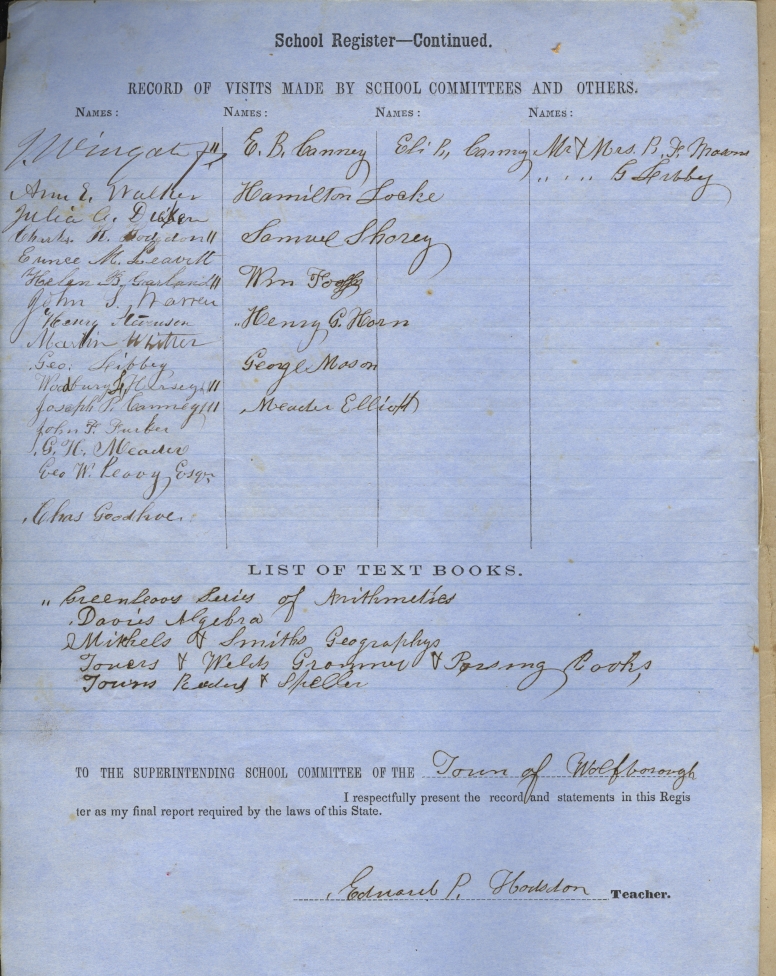 School Register—Continued.
RECORD OF VISITS MADE BY SCHOOL COMMITTEES AND OTHERS.
NAMES: NAMES: NAMES: NAMES:
J Wingate
Ann E. Walker
Julia A.
Charles H. Hodgdon "
Eunice M. Leavitt
Helen B. Garland "
John S. Warren
Henry Stevenson
Martin Whitter
Geo. Libby
Woodbury Hersey "
Joseph P. Canney
John F. Furber
G. H. Meader
Geo W. Peavy Esqr
Chas Goodhue.
E. B. Canney
Hamilton Locke
Samuel Shorey
Wm
Henry G. Horn
George Moson
Meader Elliott
Eli B, Canney
Mr & Mrs. B. F.
" . . . G Libby
LIST OF TEXT BOOKS.
" Greenleavs Series of Arithmetics
Davies Algebra
Mitchels & Smiths Geographys
Towers & Welds Grammer & Parsing Books
Towns Reders & Speller
TO THE SUPERINTENDING SCHOOL COMMITTEE OF THE Town of Wolfborough
I respectfully present the record and statements in this Regis
ter as my final report required by the laws of this State.
Edward P. Hodsdon Teacher.